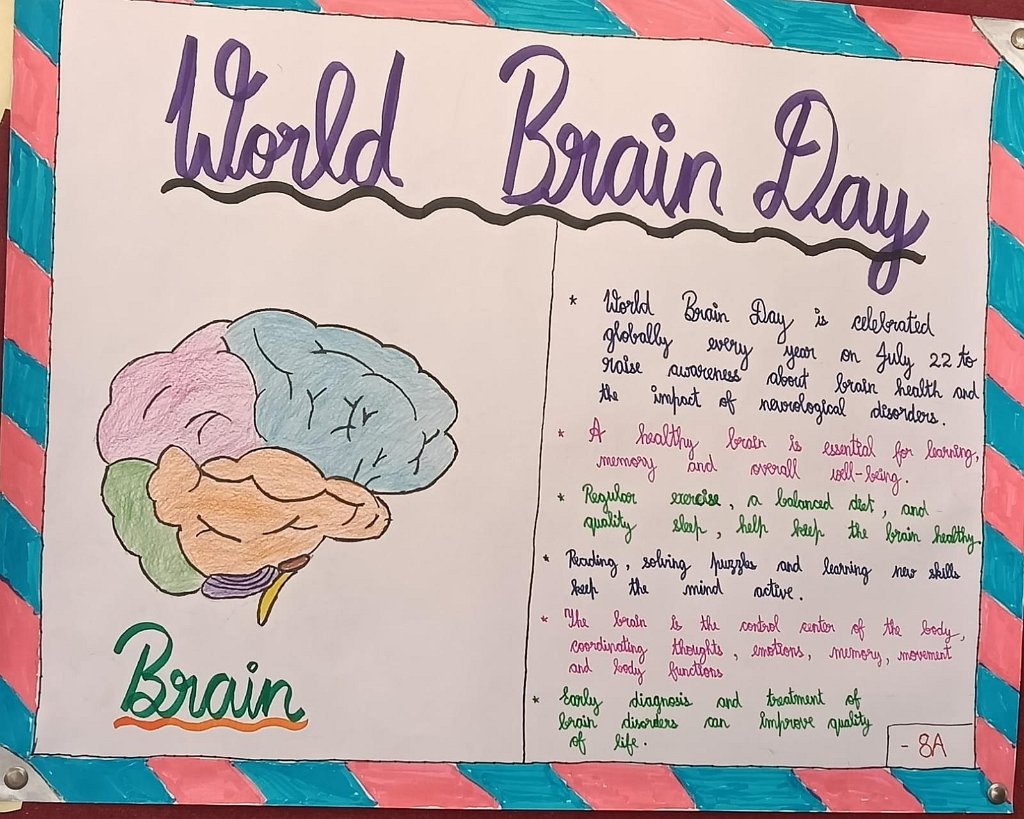 World Brain Day
* World Brain Day is celebrated
globally every year on July 22 to
raise awareness about brain health and
the impact of neurological disorders.
* A healthy brain is essential for learning,
memory and overall well-being.
* Regular exercise, a balanced diet, and
quality sleep, help keep the brain healthy.
* Reading, solving puzzles and learning new skills
keep the mind active.
* The brain is the control center of the body,
coordinating thoughts, emotions, memory, movement
and body functions
* Early diagnosis and treatment of
brain disorders can improve quality
of life.
Brain
- 8A